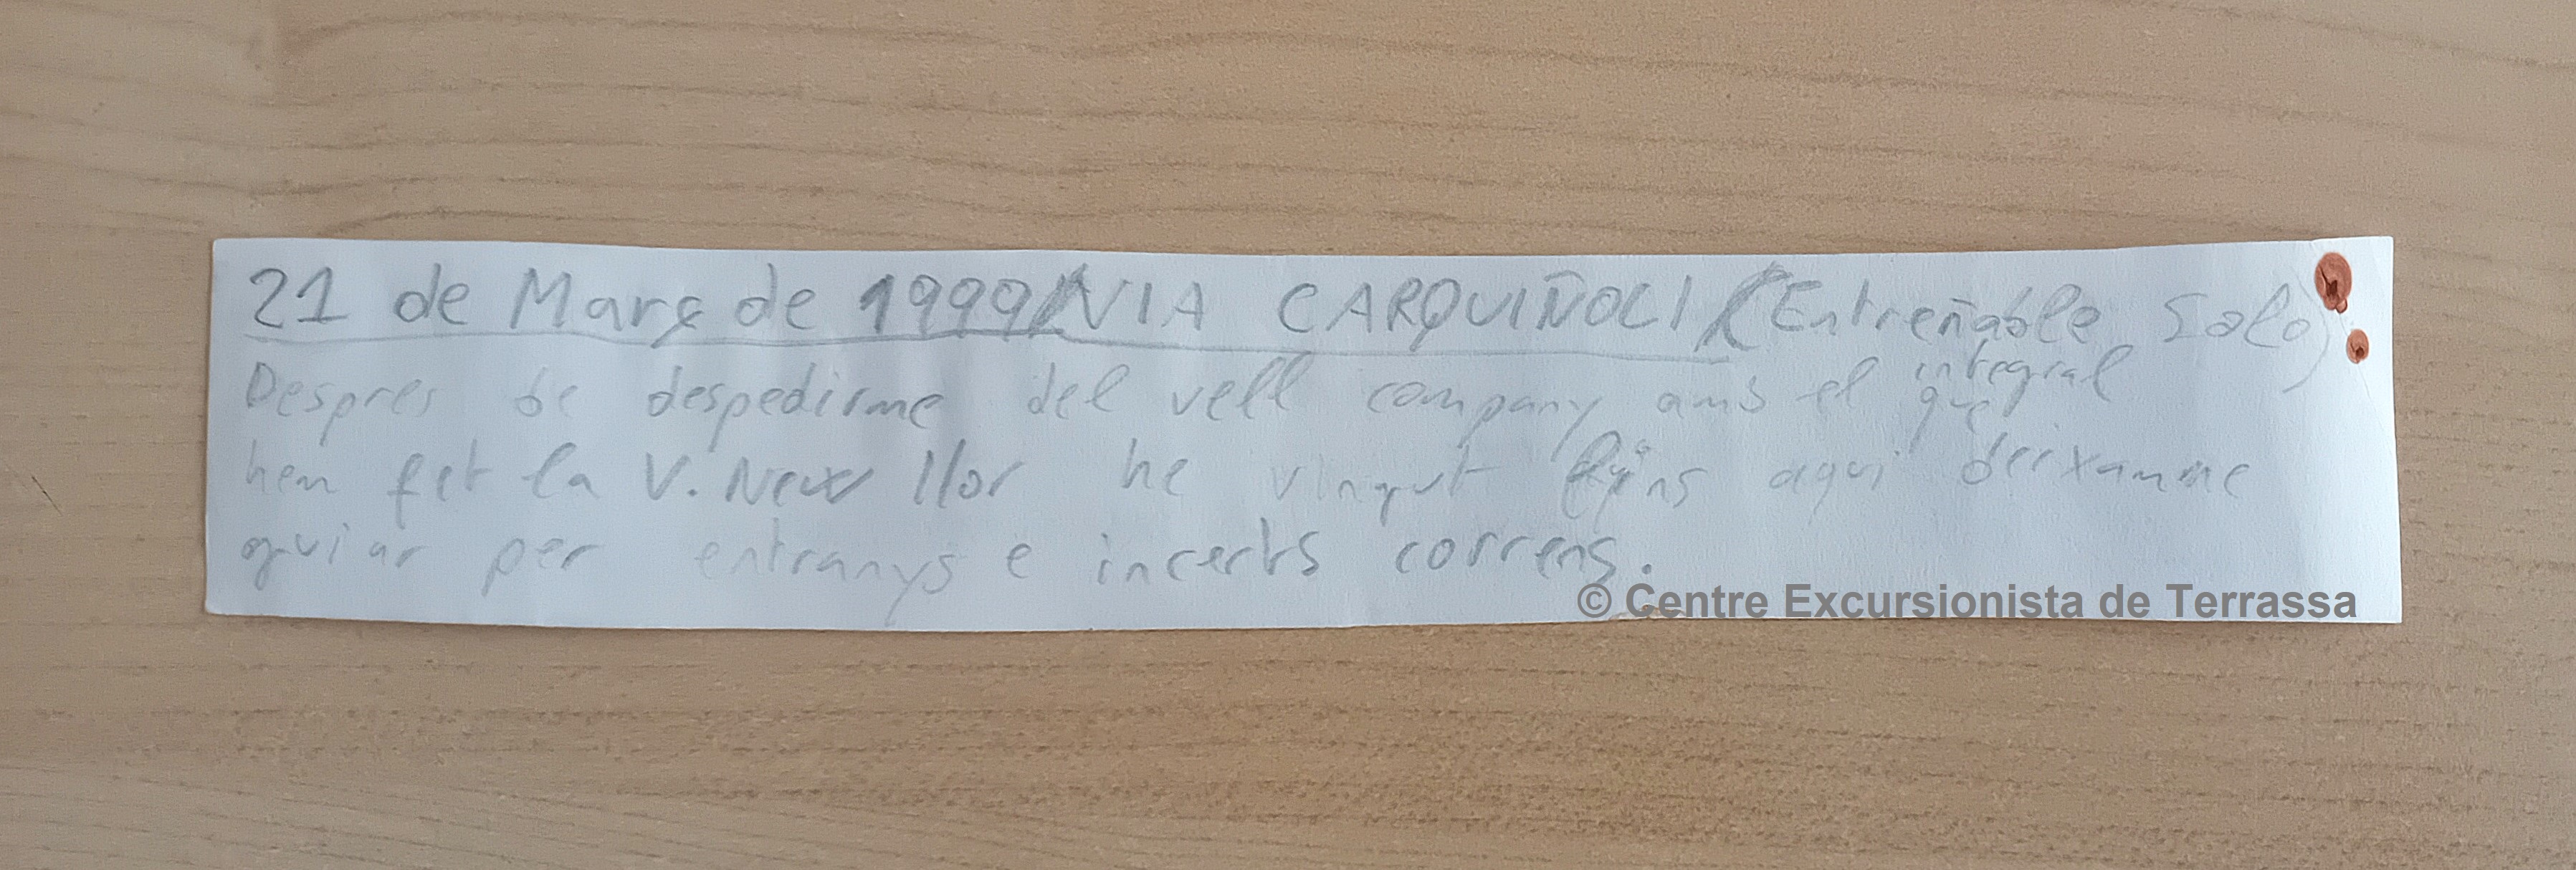 21 de Març de 1999/VIA CARQUIÑOLI (Entreñable Solo)
Despres de despedirme del vell company amb el integral que
hem fet la V. New llor he vingut fins aqui deixanme
guiar per entranys e incerts correns.
© Centre Excursionista de Terrassa